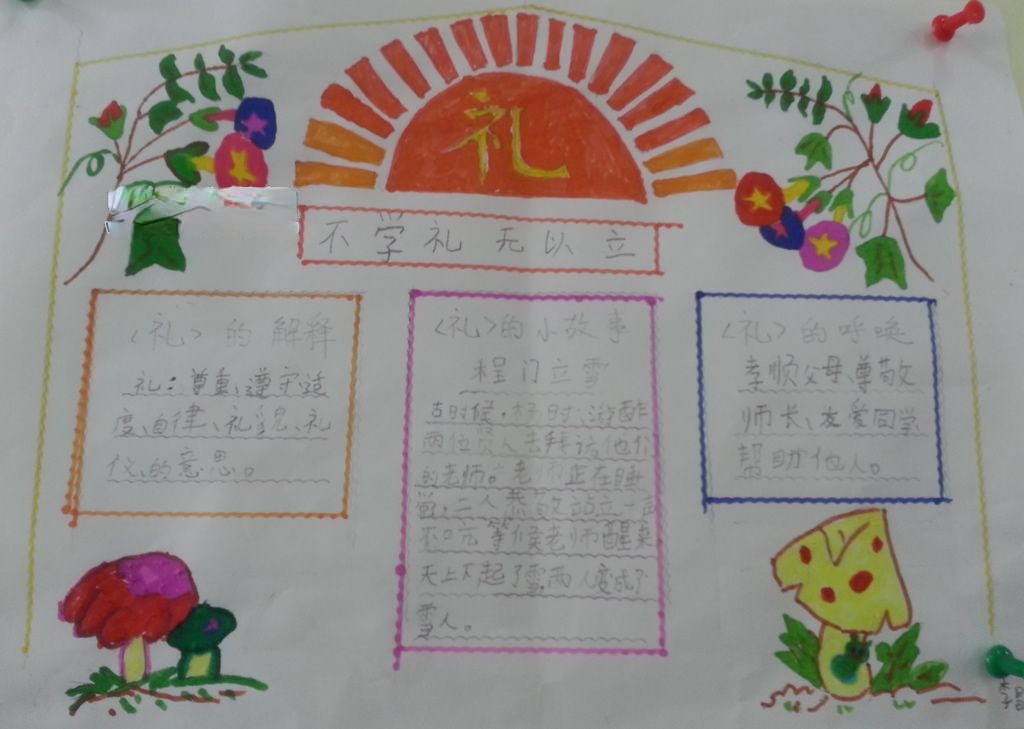 礼
不学礼 无以立
〈礼〉的解释
礼:尊重、遵守适
度、自律、礼貌、礼
仪、的意思。
〈礼〉的小故事
程门立雪
古时候,杨时、游酢
两位贤人去拜访他们
的老师。老师正在睡
觉,二人恭敬站立一声
不吭等候老师醒来
天上下起了雪,两人变成了
雪人。
〈礼〉的呼唤
孝顺父母、尊敬
师长、友爱同学
帮助他人。